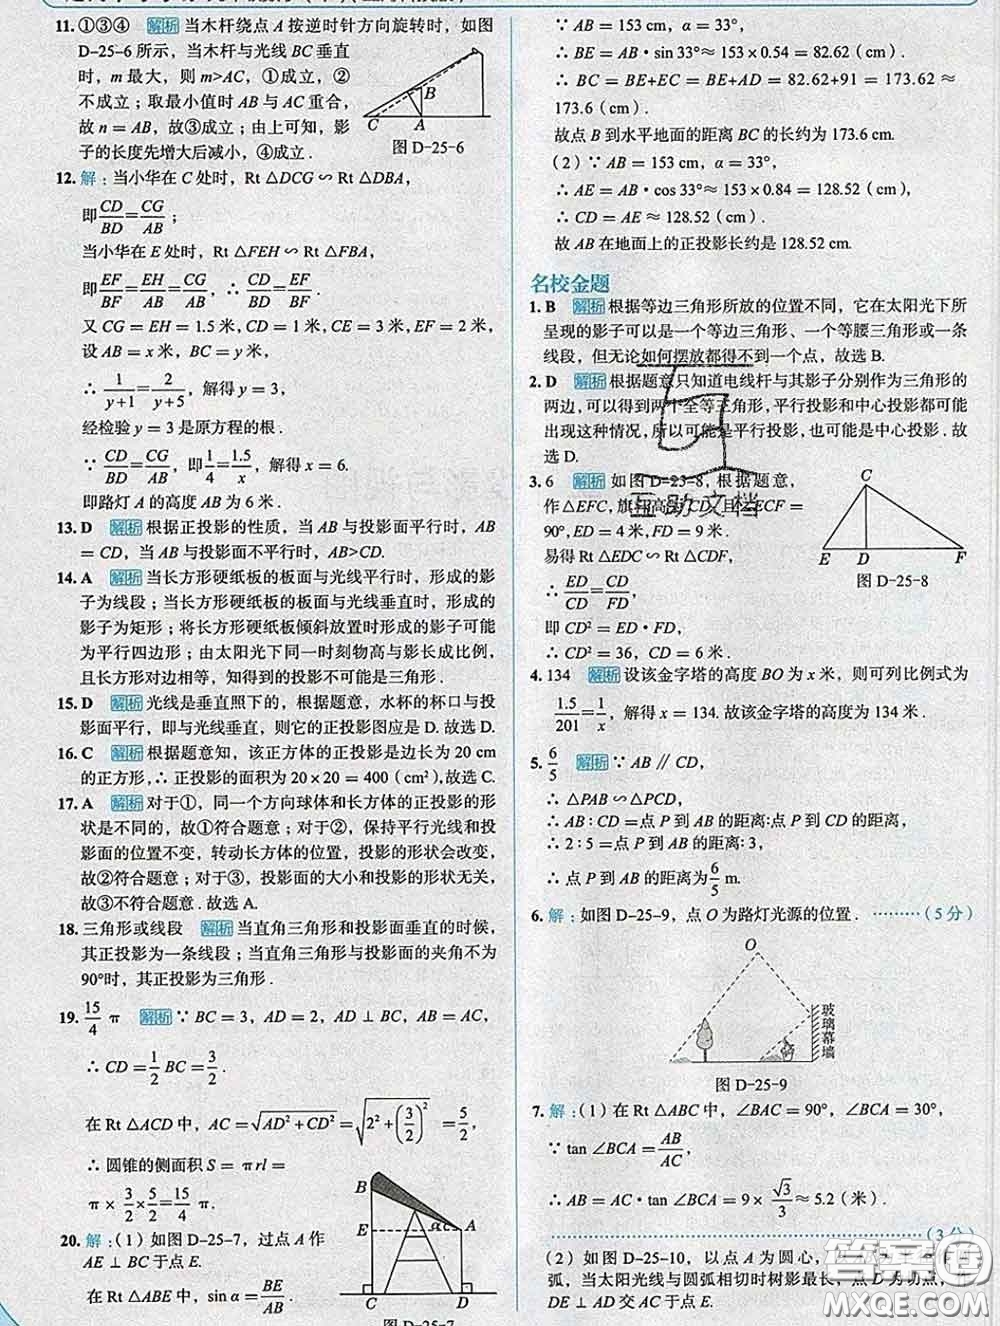 11. ①③④ 解析 当木杆绕点 A 按逆时针方向旋转时，如图
D-25-6 所示，当木杆与光线 BC 垂直
时，m 最大，则 m>AC，①成立，②
不成立；取最小值时 AB 与 AC 重合，
故 n = AB，故③成立；由上可知，影
子的长度先增大后减小，④成立.
B
C
A
图 D-25-6
12. 解：当小华在 C 处时，Rt △DCG ∽ Rt △DBA，
即CD/BD = CG/AB；
当小华在 E 处时，Rt △FEH ∽ Rt △FBA，
即EF/BF = EH/AB = CG/AB，∴ CD/BD = EF/BF.
又 CG = EH = 1.5 米，CD = 1 米，CE = 3 米，EF = 2 米，
设 AB = x 米，BC = y 米，
∴ 1/(y+1) = 2/(y+5)，解得 y = 3，
经检验 y = 3 是原方程的根.
∵ CD/BD = CG/AB，即 1/4 = 1.5/x，解得 x = 6.
即路灯 A 的高度 AB 为 6 米.
13. D 解析 根据正投影的性质，当 AB 与投影面平行时，AB
= CD，当 AB 与投影面不平行时，AB>CD.
14. A 解析 当长方形硬纸板的板面与光线平行时，形成的影
子为线段；当长方形硬纸板的板面与光线垂直时，形成的
影子为矩形；将长方形硬纸板倾斜放置时形成的影子可能
为平行四边形；由太阳光下同一时刻物高与影长成比例，
且长方形对边相等，知得到的投影不可能是三角形.
15. D 解析 光线是垂直照下的，根据题意，水杯的杯口与投
影面平行，即与光线垂直，则它的正投影图应是 D. 故选 D.
16. C 解析 根据题意知，该正方体的正投影是边长为 20 cm
的正方形，∴ 正投影的面积为 20 × 20 = 400（cm²）. 故选 C.
17. A 解析 对于①，同一个方向球体和长方体的正投影的形
状是不同的，故①符合题意；对于②，保持平行光线和投
影面的位置不变，转动长方体的位置，投影的形状会改变，
故②符合题意；对于③，影面的大小和投影的形状无关，
故③不符合题意. 故选 A.
18. 三角形或线段 解析 当直角三角形和投影面垂直的时候，
其正投影为一条线段；当直角三角形与投影面的夹角不为
90°时，其正投影为三角形.
19. 15/4 π 解析 ∵ BC = 3，AD = 2，AD ⊥ BC，AB = AC，
∴ CD = 1/2 BC = 3/2.
在 Rt △ACD 中，AC = √(AD² + CD²) = √(2² + (3/2)²) = 5/2，
∴ 圆锥的侧面积 S = πrl =
π × 3/2 × 5/2 = 15/4 π.
20. 解：（1）如图 D-25-7，过点 A 作
AE ⊥ BC 于点 E.
在 Rt △ABE 中，sin α = BE/AB.
B
E
α
A
C
D
图 D-25-7
∵ AB = 153 cm，α = 33°，
∴ BE = AB · sin 33° ≈ 153 × 0.54 = 82.62（cm）.
∴ BC = BE+EC = BE+AD = 82.62+91 = 173.62 ≈
173.6（cm）.
故点 B 到水平地面的距离 BC 的长约为 173.6 cm.
（2）∵ AB = 153 cm，α = 33°，
∴ AE = AB · cos 33° ≈ 153 × 0.84 = 128.52（cm）.
∴ CD = AE ≈ 128.52（cm）.
故 AB 在地面上的正投影长约是 128.52 cm.
名校金题
1. B 解析 根据等边三角形所放的位置不同，它在太阳光下所
呈现的影子可以是一个等边三角形、一个等腰三角形或一条
线段，但无论如何摆放都得不到一个点，故选 B.
2. D 解析 根据题意只知道电线杆与其影子分别作为三角形的
两边，可以得到两个全等三角形，平行投影和中心投影都可能
出现这种情况，所以可能是平行投影，也可能是中心投影. 故
选 D.
3. 6 解析 如图 D-25-8，根据题意，
作 △EFC，旗杆高为 CD，且 ∠ECF =
90°，ED = 4 米，FD = 9 米.
易得 Rt △EDC ∽ Rt △CDF，
∴ ED/CD = CD/FD，
即 CD² = ED · FD，
∴ CD² = 36，CD = 6 米.
C
E
D
F
图 D-25-8
互助文档
4. 134 解析 设该金字塔的高度 BO 为 x 米，则可列比例式为
1.5/201 = 1/x，解得 x = 134. 故该金字塔的高度为 134 米.
5. 6/5 解析 ∵ AB ∥ CD，
∴ △PAB ∽ △PCD，
∴ AB : CD = 点 P 到 AB 的距离:点 P 到 CD 的距离，
∴ 2 : 5 = 点 P 到 AB 的距离: 3，
∴ 点 P 到 AB 的距离为 6/5 m.
6. 解：如图 D-25-9，点 O 为路灯光源的位置. ………（5 分）
O
玻璃幕墙
图 D-25-9
7. 解：（1）在 Rt △ABC 中，∠BAC = 90°，∠BCA = 30°，
∵ tan ∠BCA = AB/AC，
∴ AB = AC · tan ∠BCA = 9 × √3/3 ≈ 5.2（米）.
……………………（3 分）
（2）如图 D-25-10，以点 A 为圆心，
弧，当太阳光线与圆弧相切时树影最长，点 D 为切点，作
DE ⊥ AD 交 AC 于点 E.
答案圈
MXQE.COM